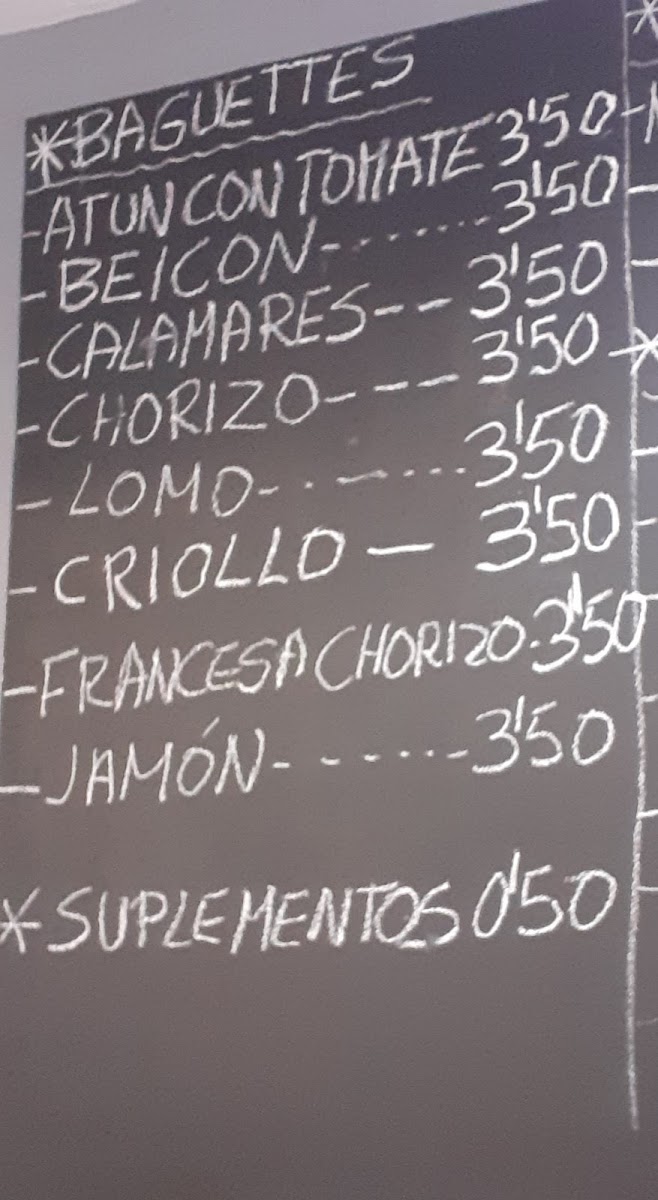 *BAGUETTES
-ATUN CON TOMATE 3'50
-BEICON-······· 3'50
-CALAMARES--- 3'50
-CHORIZO---- 3'50
-LOMO-··-···· 3'50
-CRIOLLO — 3'50
-FRANCESA CHORIZO-3'50
-JAMÓN-------3'50
*SUPLEMENTOS 0'50